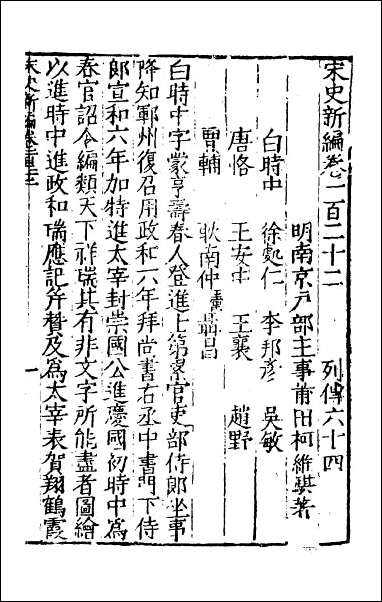 宋史新編卷一百二十二　列傳六十四
明南京戶部主事莆田柯維騏著
白時中　徐處仁　李邦彥　吳敏
唐恪　王安中　王襄　趙野
曹輔　耿南仲　聶昌
白時中字蒙亨壽春人登進士第累官吏部侍郎坐事
降知鄆州復召用政和六年拜尚書右丞中書門下侍
郎宣和六年加特進太宰封崇國公進慶國初時中爲
春官詔令編類天下祥瑞其有非文字所能盡者圖繪
以進時中進政和瑞應記并贊及爲太宰表賀翔鶴霞
宋史新編卷
一